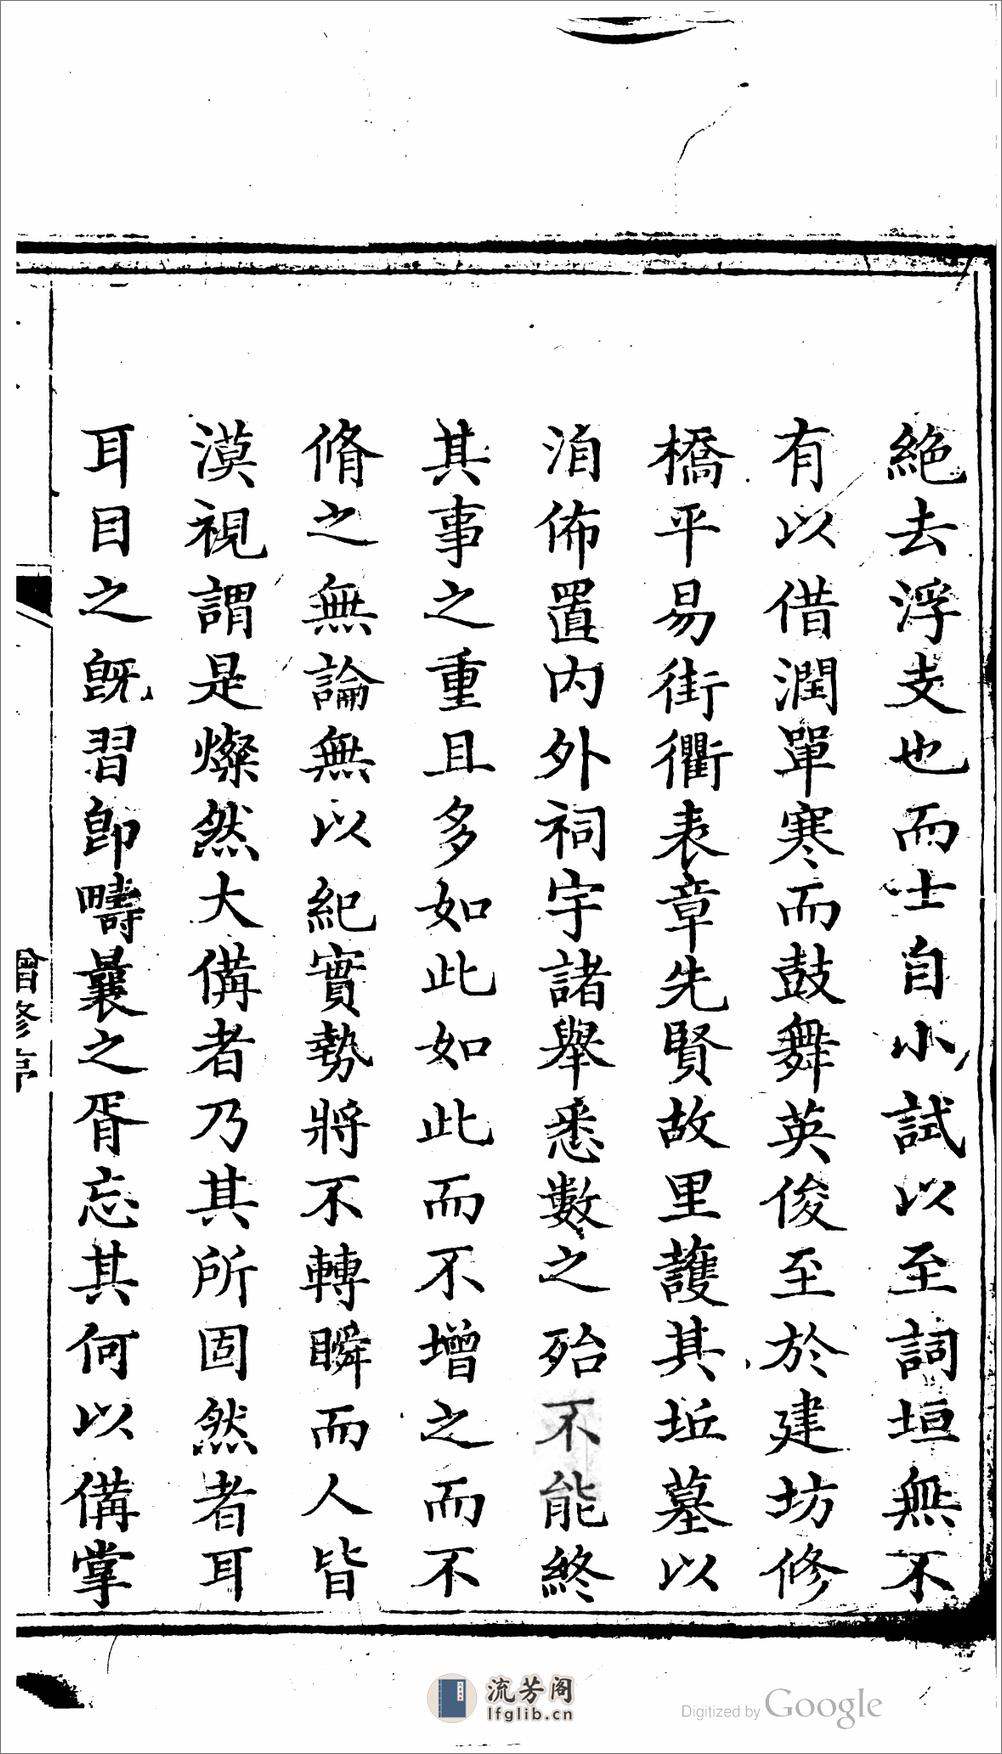 絶去浮支也而士自小試以至詞垣無不
有以借潤單寒而鼓舞英俊至於建坊修
橋平易街衢表章先賢故里護其坵墓以
洎佈置内外祠宇諸舉悉數之殆不能終
其事之重且多如此如此而不增之而不
脩之無論無以紀實勢將不轉瞬而人皆
漠視謂是燦然大備者乃其所固然者耳
耳目之既習卽疇曩之胥忘其何以備掌
增修序
流芳阁
lfglib.cn
Digitized by Google